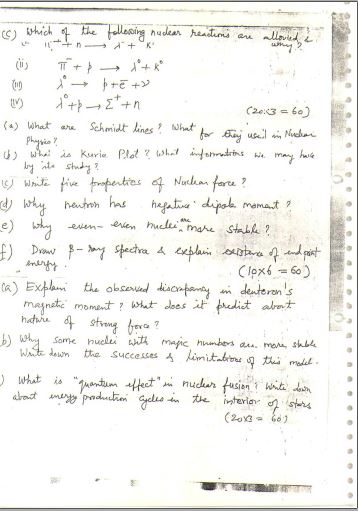 (c) Which of the following nuclear reactions are allowed & why?
(i) π⁻ + n → λ⁻ + K°
(ii) π⁻ + p → λ° + K°
(iii) λ° → p + e⁻ + ν
(iv) λ° + p → Σ⁺ + n
(20×3 = 60)
(a) What are Schmidt lines? What for they use'l in Nuclear
Physics?
(b) What is Kurie Plot? What informations we may have
by its study?
(c) Write five properties of Nuclear force?
(d) Why neutron has negative dipole moment?
(e) Why even-even nuclei are more stable?
f) Draw β-ray spectra & explain existence of end point
energy.
(10×6 = 60)
(a) Explain the observed discrepancy in deuteron's
magnetic moment? What does it predict about
nature of strong force?
b) Why some nuclei with magic numbers are more stable
Write down the successes & limitations of this model.
) What is "quantum effect" in nuclear fusion? Write down
about energy production cycles in the interior of stars
(20×3 = 60)